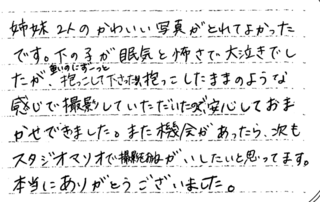 姉妹2人のかわいい写真がとれてよかった
です。下の子が眠気と怖さで大泣きでし
たが、抱っこして下さったり抱っこしたままのような
重いのにずーっと
感じで撮影していただいたので安心しておま
かせできました。また機会があったら、次も
スタジオマリオで撮影おねがいしたいと思ってます。
本当にありがとうございました。